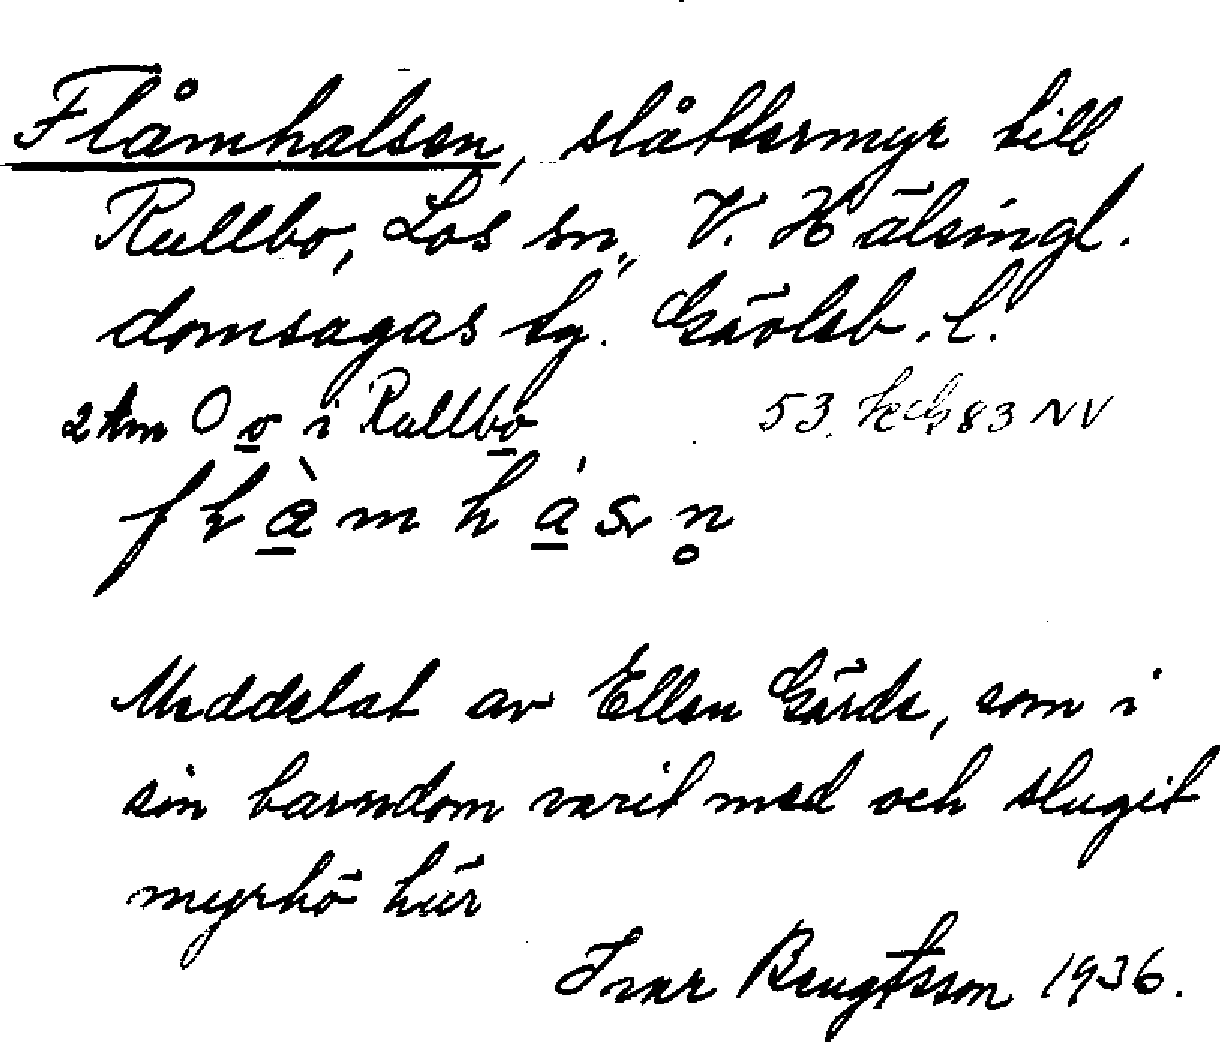 Flåmhalsen, slåttermyr till
Rullbo, Los sn, V. Hälsingl.
domsagas tg. Gävleb. l.
2 km O o i Rullbo 53. 83 NV
Meddelat av Ellen Gärde, som i
sin barndom varit med och slagit
myrhö här
Ivar Bengtsson 1936.